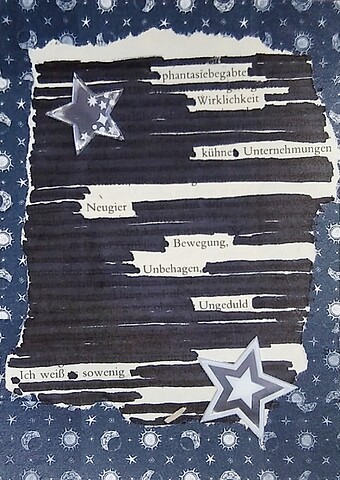 phantasiebegabte
Wirklichkeit
kühne Unternehmungen
Neugier
Bewegung,
Unbehagen,
Ungeduld
Ich weiß sowenig